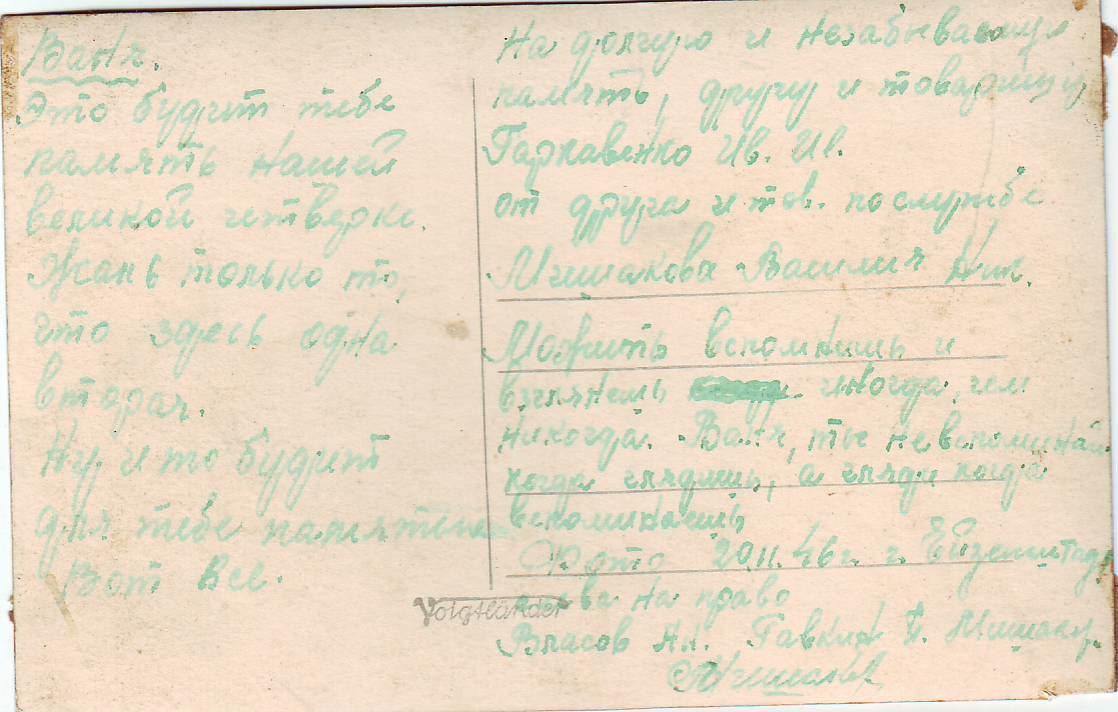 Ваня.
Это будит тебе
память нашей
великой четверке.
Жань только то,
что здесь одна
вторая.
Ну и то будит
для тебе памятью
Вот все.
На долгую и незабываемую
память, другу и товарищу
Гаркавенко Ив. Ив.
от друга и тов. послужбе
Мишакова Василия Ник.
Можить вспомнишь и
взглянешь иногда, чем
никогда. Ваня, ты невспоминай
когда глядишь, а гляди когда
вспоминаешь
Фото 20.11.46г. г. Ейзенштадт
на право
Власов Ан. Гавкин П. Мишаков
Мишаков
Voigtländer